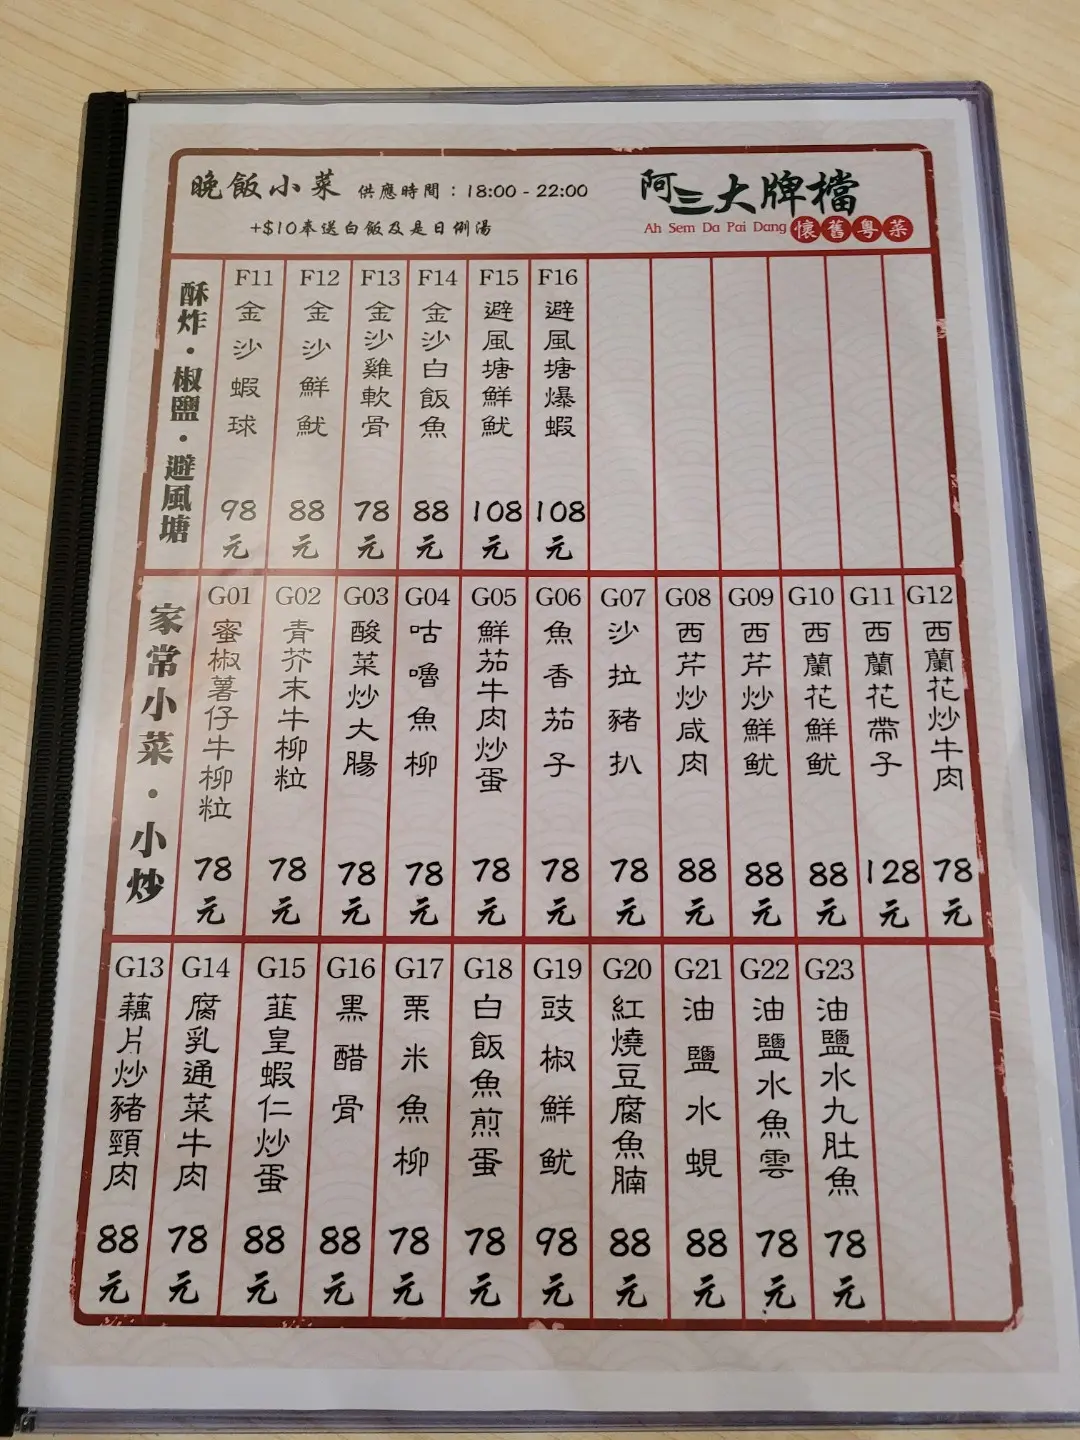 晚飯小菜 供應時間：18:00 - 22:00
+$10奉送白飯及是日例湯
阿三大牌檔
Ah Sem Da Pai Dang 懷舊粵菜
酥炸·椒鹽·避風塘
F11 金沙蝦球 98元
F12 金沙鮮魷 88元
F13 金沙雞軟骨 78元
F14 金沙白飯魚 88元
F15 避風塘鮮魷 108元
F16 避風塘爆蝦 108元
家常小菜·小炒
G01 蜜椒薯仔牛柳粒 78元
G02 青芥末牛柳粒 78元
G03 酸菜炒大腸 78元
G04 咕嚕魚柳 78元
G05 鮮茄牛肉炒蛋 78元
G06 魚香茄子 78元
G07 沙拉豬扒 78元
G08 西芹炒咸肉 88元
G09 西芹炒鮮魷 88元
G10 西蘭花鮮魷 88元
G11 西蘭花帶子 128元
G12 西蘭花炒牛肉 78元
G13 藕片炒豬頸肉 88元
G14 腐乳通菜牛肉 78元
G15 韮皇蝦仁炒蛋 88元
G16 黑醋骨 88元
G17 栗米魚柳 78元
G18 白飯魚煎蛋 78元
G19 豉椒鮮魷 98元
G20 紅燒豆腐魚腩 88元
G21 油鹽水蜆 88元
G22 油鹽水魚雲 78元
G23 油鹽水九肚魚 78元